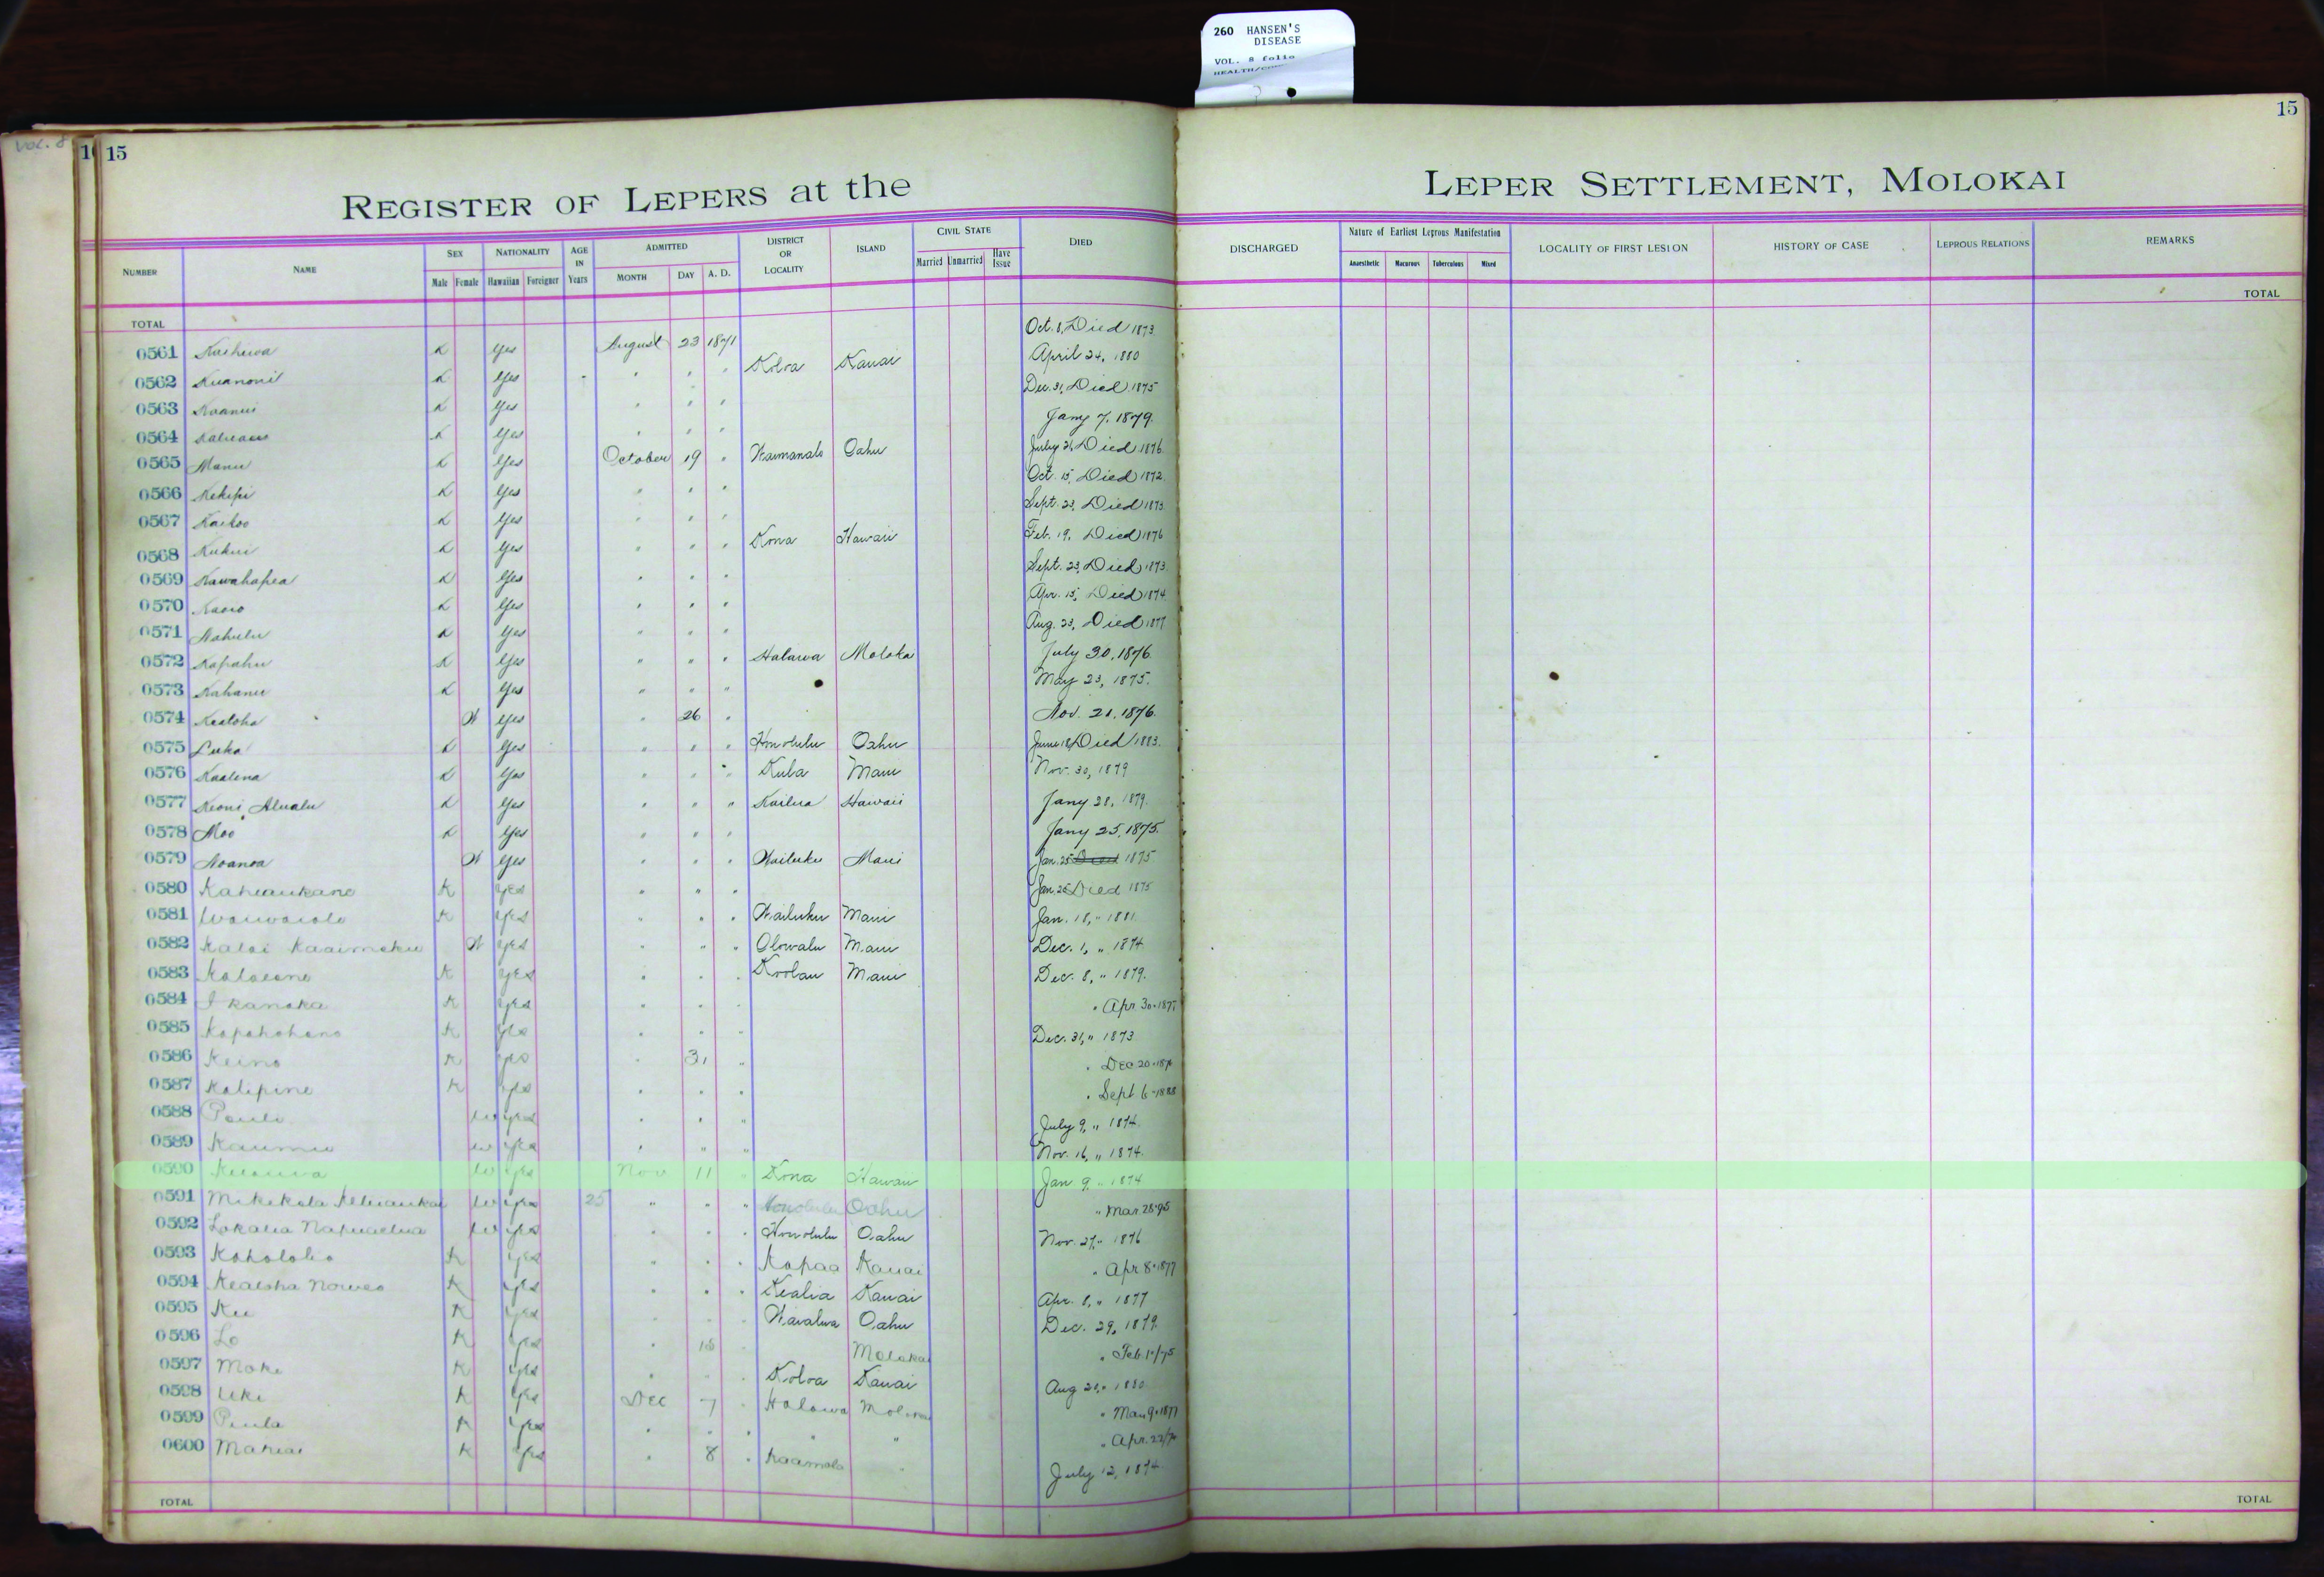 260 HANSEN'S
DISEASE
VOL. 8 folio
VOL. 8
15
15
REGISTER OF LEPERS at the
LEPER SETTLEMENT, MOLOKAI
NUMBER NAME SEX Male Female NATIONALITY Hawaiian Foreigner AGE IN Years ADMITTED MONTH DAY A. D. DISTRICT OR LOCALITY ISLAND CIVIL STATE Married Unmarried Have Issue DIED
DISCHARGED Nature of Earliest Leprous Manifestation Anaesthetic Macurous Tuberculous Mixed LOCALITY OF FIRST LESION HISTORY OF CASE LEPROUS RELATIONS REMARKS
TOTAL
TOTAL
0561 K Yes August 23 1871 Oct. 8, Died 1873
0562 K Yes " " " Koloa Kauai April 24, 1880
0563 K Yes " " " Dec. 31, Died 1875
0564 K Yes " " " Jany 7, 1879.
0565 Manu K Yes October 19 " Waimanalo Oahu July 21, Died 1876
0566 Kekipi K Yes " " " Oct. 15, Died 1872
0567 Kaikoo K Yes " " " Sept. 23, Died 1873
0568 Kukui K Yes " " " Kona Hawaii Feb. 19, Died 1876
0569 Kawahapea K Yes " " " Sept. 23, Died 1873
0570 K Yes " " " Apr. 15, Died 1874
0571 Nahulu K Yes " " " Aug. 23, Died 1877
0572 Kapahu K Yes " " " Halawa Moloka July 30, 1876
0573 Kahanu K Yes " " " May 23, 1875.
0574 Kealoha W Yes " 26 " Nov. 21, 1876.
0575 Luka K Yes " " " Honolulu Oahu June 18, Died 1883.
0576 Kaalena K Yes " " " Kula Maui Nov. 30, 1879
0577 Keoni Alualu K Yes " " " Kailua Hawaii Jany 28, 1879.
0578 Moo K Yes " " " Jany 25, 1875.
0579 Noanoa W Yes " " " Wailuku Maui Jan. 25 Died 1875
0580 Kahaukano K Yes " " " Jan. 25 Died 1875
0581 Waiwaiole K Yes " " " Wailuku Maui Jan. 18, " 1881.
0582 Kalai Kaaimoku W Yes " " " Olowalu Maui Dec. 1, " 1874
0583 K Yes " " " Koolau Maui Dec. 8, " 1879.
0584 I kanaka K Yes " " " " Apr 30 - 1877
0585 K Yes " " " Dec. 31, " 1873
0586 Keino K Yes " 31 " " Dec 20
0587 Kalipine K Yes " " " " Sept 6 - 1888
0588 Pauli W Yes " " " July 9, " 1874
0589 Kaumu W Yes " " " Nov. 16, " 1874.
0590 W Yes Nov 11 " Kona Hawaii Jan 9, " 1874
0591 Mikikola W Yes 25 " " " Honolulu Oahu " Mar. 28-95
0592 Lokalia W Yes " " " Honolulu Oahu Nov. 27, " 1876
0593 Koholoho K Yes " " " Kapaa Kauai " Apr 8 - 1877
0594 Kealoha K Yes " " " Kealia Kauai Apr. 8, " 1877
0595 Ku K Yes " " " Waialua Oahu Dec. 29, 1879.
0596 Lo K Yes " 18 " Molokai " Feb.
0597 Moke K Yes " " " Koloa Kauai Aug 20, " 1880
0598 Uki K Yes Dec 7 " Halawa Molokai " Mar. 9 - 1877
0599 Paula K Yes " " " " " " Apr. 22
0600 Mahiai K Yes " 8 " Kaamola " July 12, 1874
TOTAL
TOTAL